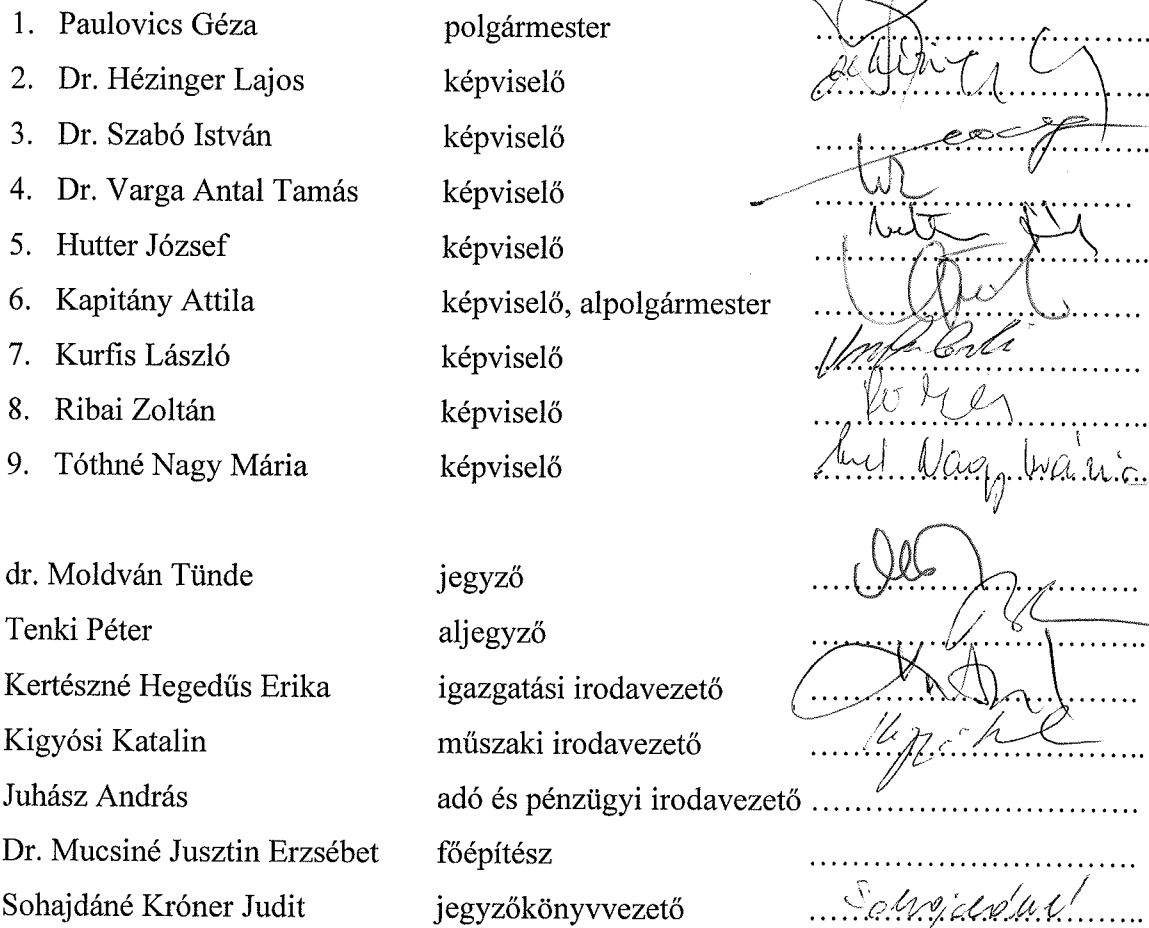 1. Paulovics Géza polgármester ....................
2. Dr. Hézinger Lajos képviselő ....................
3. Dr. Szabó István képviselő ....................
4. Dr. Varga Antal Tamás képviselő ....................
5. Hutter József képviselő ....................
6. Kapitány Attila képviselő, alpolgármester ....................
7. Kurfis László képviselő ....................
8. Ribai Zoltán képviselő ....................
9. Tóthné Nagy Mária képviselő Nagy Mária
dr. Moldván Tünde jegyző ....................
Tenki Péter aljegyző ....................
Kertészné Hegedűs Erika igazgatási irodavezető ....................
Kigyósi Katalin műszaki irodavezető ....................
Juhász András adó és pénzügyi irodavezető ....................
Dr. Mucsiné Jusztin Erzsébet főépítész ....................
Sohajdáné Króner Judit jegyzőkönyvvezető Sohajdáné